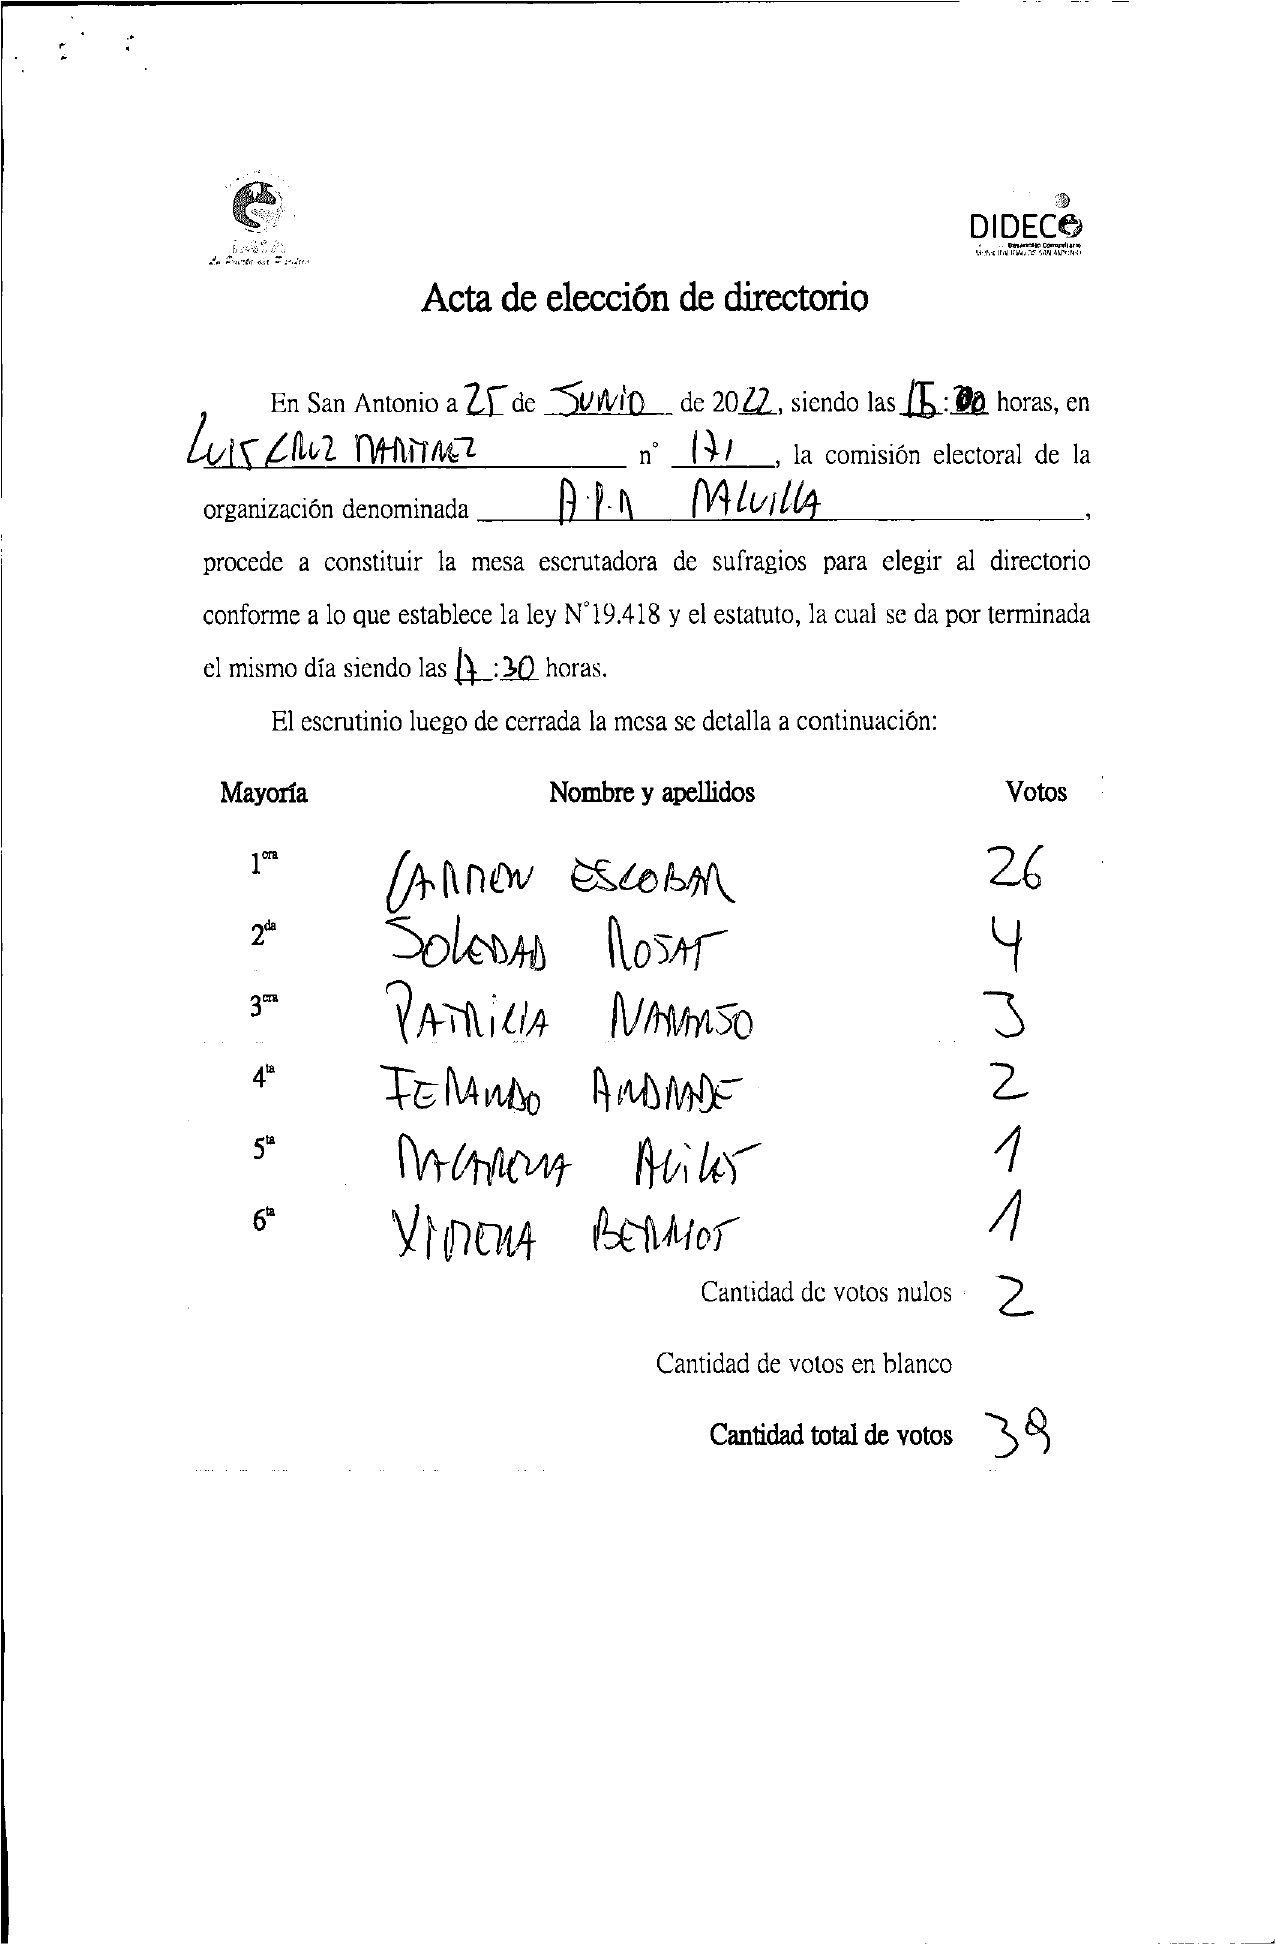 DIDECO
Desarrollo Comunitario
MUNICIPALIDAD DE SAN ANTONIO
Acta de elección de directorio
En San Antonio a 25 de JUNIO de 2022, siendo las : 00 horas, en
LUIS CRUZ MARTINEZ n° 171, la comisión electoral de la
organización denominada A.P.R MALVILLA,
procede a constituir la mesa escrutadora de sufragios para elegir al directorio
conforme a lo que establece la ley N°19.418 y el estatuto, la cual se da por terminada
el mismo día siendo las 17:30 horas.
El escrutinio luego de cerrada la mesa se detalla a continuación:
Mayoría Nombre y apellidos Votos
1era CARMEN ESCOBAR 26
2da SOLEDAD ROSAS 4
3era PATRICIA 3
4ta FERNANDO ANDRADE 2
5ta MACARENA 1
6ta XIMENA BERRIOS 1
Cantidad de votos nulos 2
Cantidad de votos en blanco
Cantidad total de votos 39